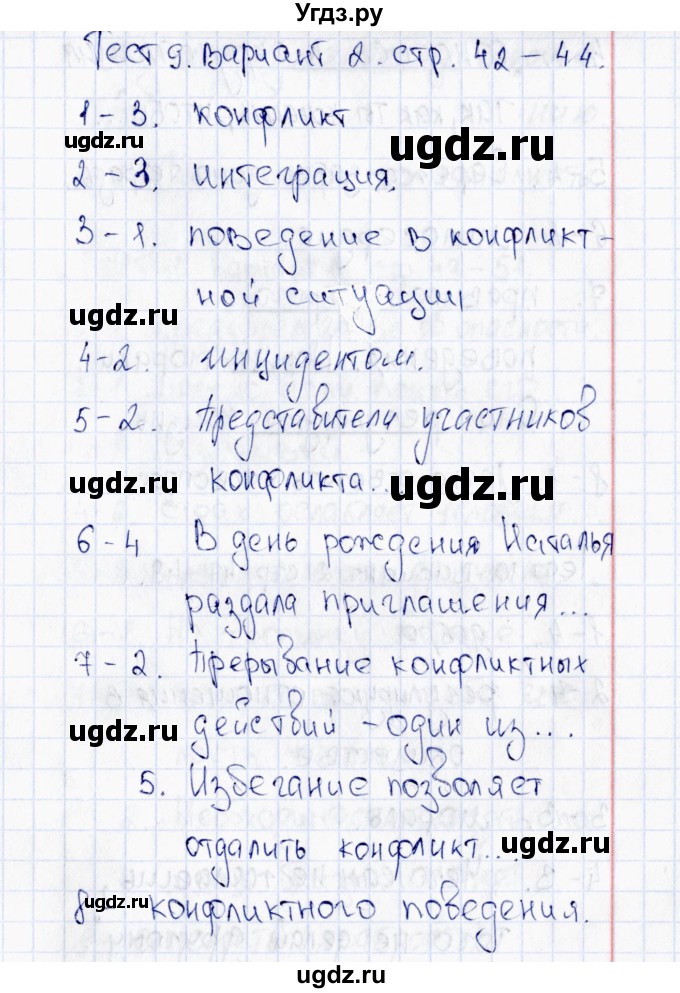 Угдз.ру
Тест 9. Вариант 2. стр. 42 – 44.
1 – 3. конфликт
ugdz.ru ugdz.ru
2 – 3. интеграция.
3 – 1. поведение в конфликт-
ной ситуации
ugdz.ru ugdz.ru
4-2. инцидентом.
5-2. Представители участников
ugdz.ru конфликта... ugdz.ru
6-4 В день рождения Наталья
ugdz.ru раздала приглашения... ugdz.ru
7-2. Прерывание конфликтных
ugdz.ru действий – один из.... ugdz.ru
5. Избегание позволяет
отдалить конфликт.... ugdz.ru
ugdz.ru 8. конфликтного поведения.
ugdz.ru